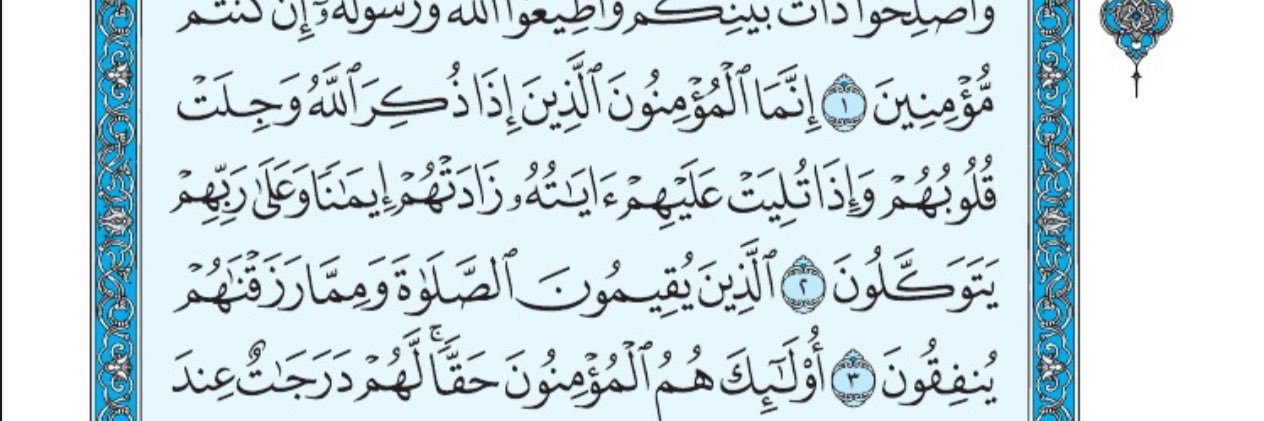 وَأَصْلِحُوا۟ ذَاتَ بَيْنِكُمْ وَأَطِيعُوا۟ ٱللَّهَ وَرَسُولَهُۥٓ إِن كُنتُم
مُّؤْمِنِينَ ١ إِنَّمَا ٱلْمُؤْمِنُونَ ٱلَّذِينَ إِذَا ذُكِرَ ٱللَّهُ وَجِلَتْ
قُلُوبُهُمْ وَإِذَا تُلِيَتْ عَلَيْهِمْ ءَايَـٰتُهُۥ زَادَتْهُمْ إِيمَـٰنًا وَعَلَىٰ رَبِّهِمْ
يَتَوَكَّلُونَ ٢ ٱلَّذِينَ يُقِيمُونَ ٱلصَّلَوٰةَ وَمِمَّا رَزَقْنَـٰهُمْ
يُنفِقُونَ ٣ أُو۟لَـٰٓئِكَ هُمُ ٱلْمُؤْمِنُونَ حَقًّا ۚ لَّهُمْ دَرَجَـٰتٌ عِندَ